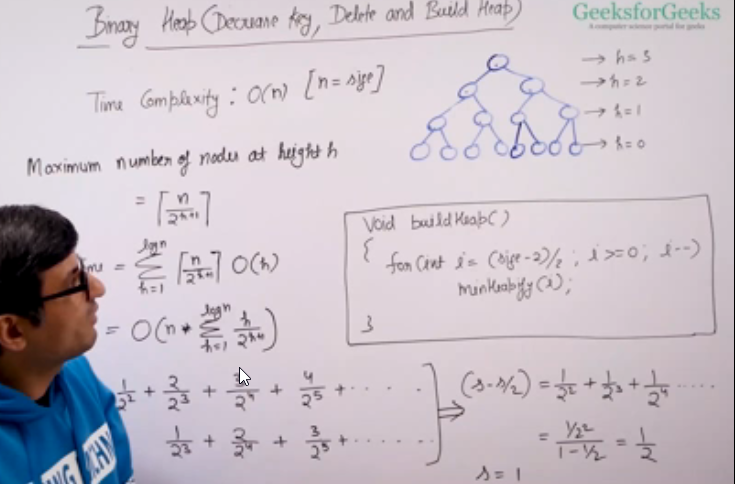 Binary Heap (Decrease Key, Delete and Build Heap)
GeeksforGeeks
A computer science portal for geeks
Time Complexity : O(n) [n = size]
→ h = 3
→ h = 2
→ h = 1
→ h = 0
Maximum number of nodes at height h
= ⌈n/2^(h+1)⌉
= Σ_{h=1}^{log n} ⌈n/2^(h+1)⌉ O(h)
= O(n * Σ_{h=1}^{log n} h/2^(h+1))
void buildHeap()
{
for (int i = (size-2)/2 ; i >= 0 ; i--)
minHeapify(i);
}
1/2^2 + 2/2^3 + 3/2^4 + 4/2^5 + . . . . .
1/2^3 + 2/2^4 + 3/2^5 + . . . . . .
⇒ (s - s/2) = 1/2^2 + 1/2^3 + 1/2^4 . . . . .
= (1/2^2)/(1 - 1/2) = 1/2
s = 1